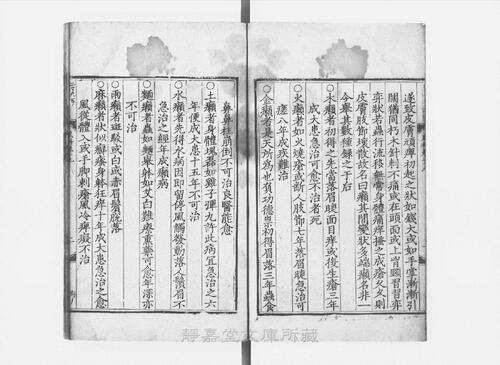 遂致皮膚頑痺初起之狀如錢大或如手掌漸漸引
闊猶同朽木針刺不痛或在頭面或上胷臆習習奕
奕狀若蟲行流移無常身體痛痒搔之成瘡久久則
皮膚肢節壞散故名曰癩其間變狀多端癩名非一
今畧其數種録之于后
○木癩者初得之先當落眉睫面目痒或後生瘡三年
成大患急治可愈不治者死
○火癩者如火燒瘡或斷人肢節七年落眉睫急治可
瘥八年成疾難治
○金癩者是天所為也負功德祟初得眉落三年蟲食
鼻鼻柱崩倒不可治良醫能愈
○土癩者身體塊磊如雞子彈丸許此病宜急治之六
年便成大患十五年不可治
○水癩者先得水病因即留停風觸發動落人鬚眉不
急治之經年成癩病
○麵癩者蟲如麵舉身如艾白難療熏藥可愈年深亦
不可治
○雨癩者斑駁或白或赤眉鬚脫落
○麻癩者狀似癬瘡身躰狂痒十年成大患急治之愈
風從體入或手脚刺瘡風冷痺癡不治
靜嘉堂文庫所藏